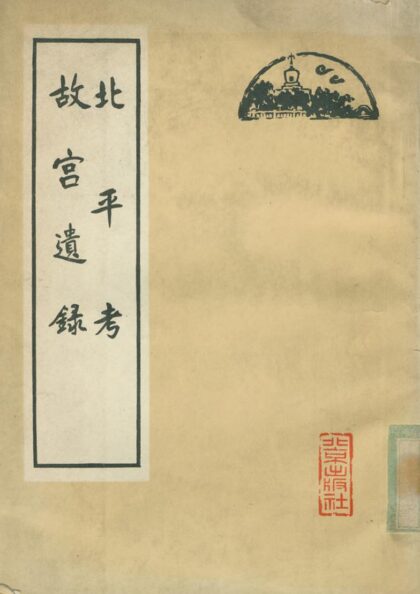 北平考
故宮遺録
北京出版社